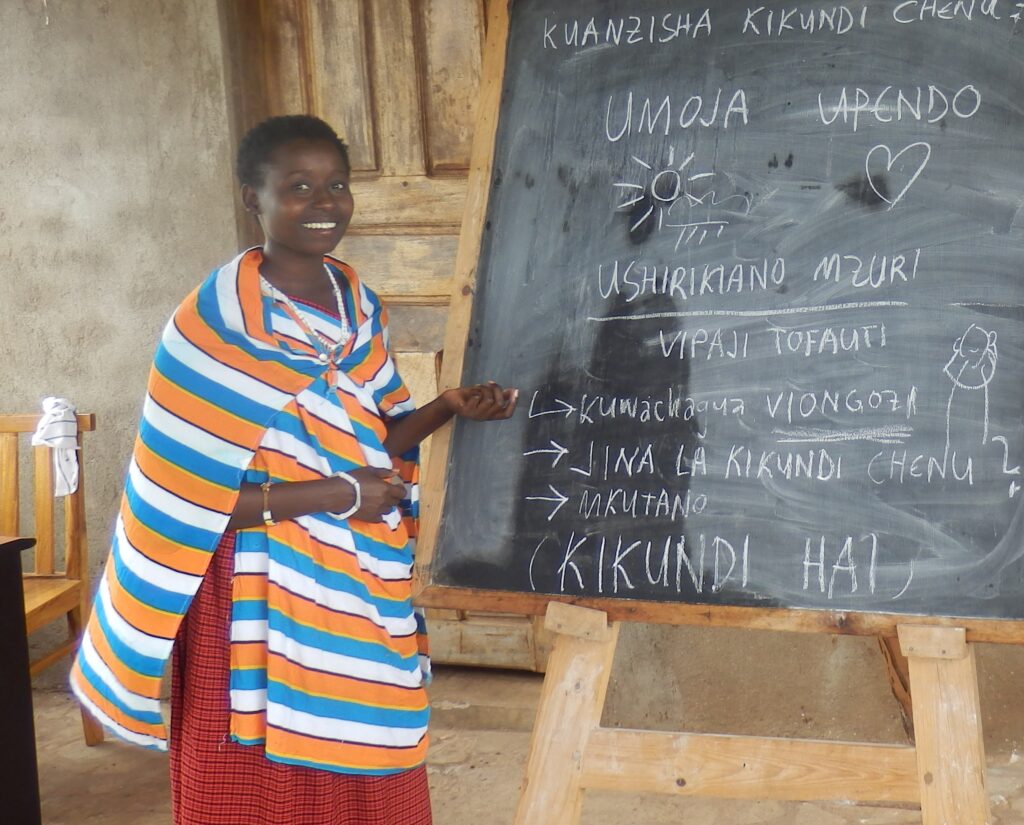 KUANZISHA KIKUNDI CHENU
UMOJA UPENDO
USHIRIKIANO MZURI
VIPAJI TOFAUTI
→ Kuwachagua VIONGOZI
→ JINA LA KIKUNDI CHENU ?
→ MKUTANO
(KIKUNDI HAI)